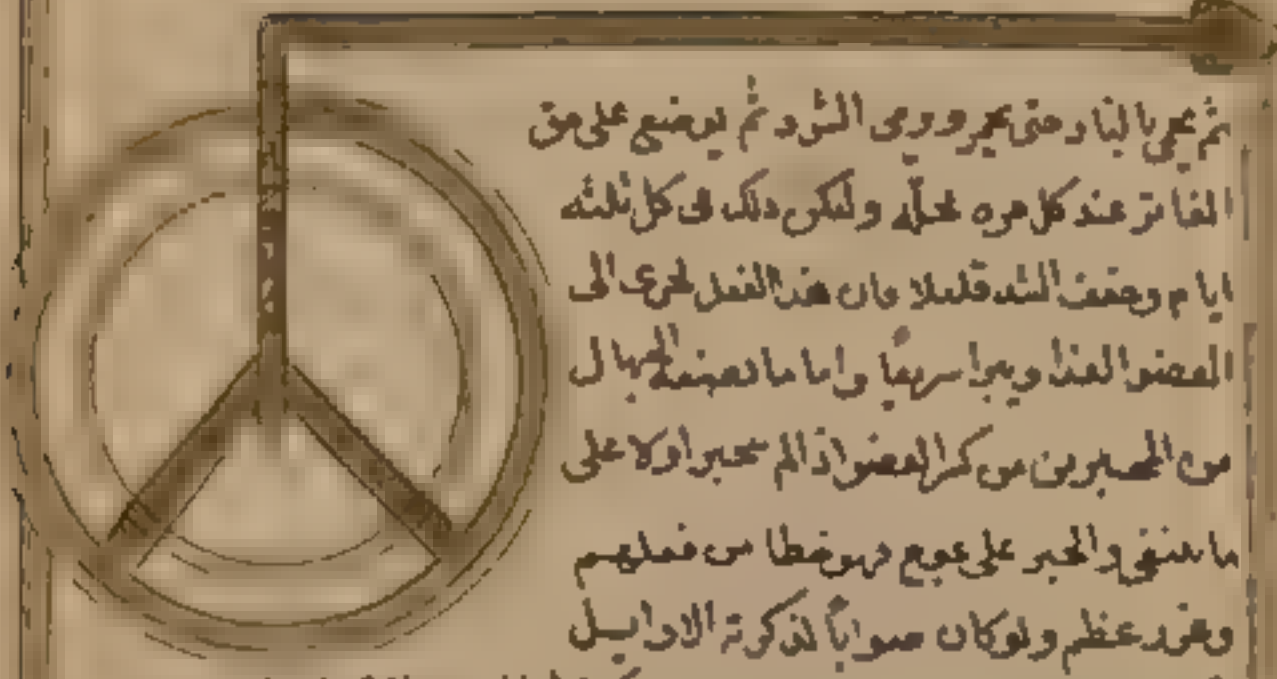 ثم يحمى بالنار حتى يحمر ويرمى الشرر ثم يوضع على حق
عند كل مره بحله وليكن ذلك في كل ثلثه
ايام وخفف الشد قليلا فان هذا الفعل الى
العضو الغذا ويبرا سريعا واما ما تصنعه الجهال
من المجبرين من كسر العضو اذا لم يجبر اولا على
ما ينبغي والجبر على عوج فهو خطا من فعلهم
وغرر عظيم ولو كان صوابا لذكرته الاوايل